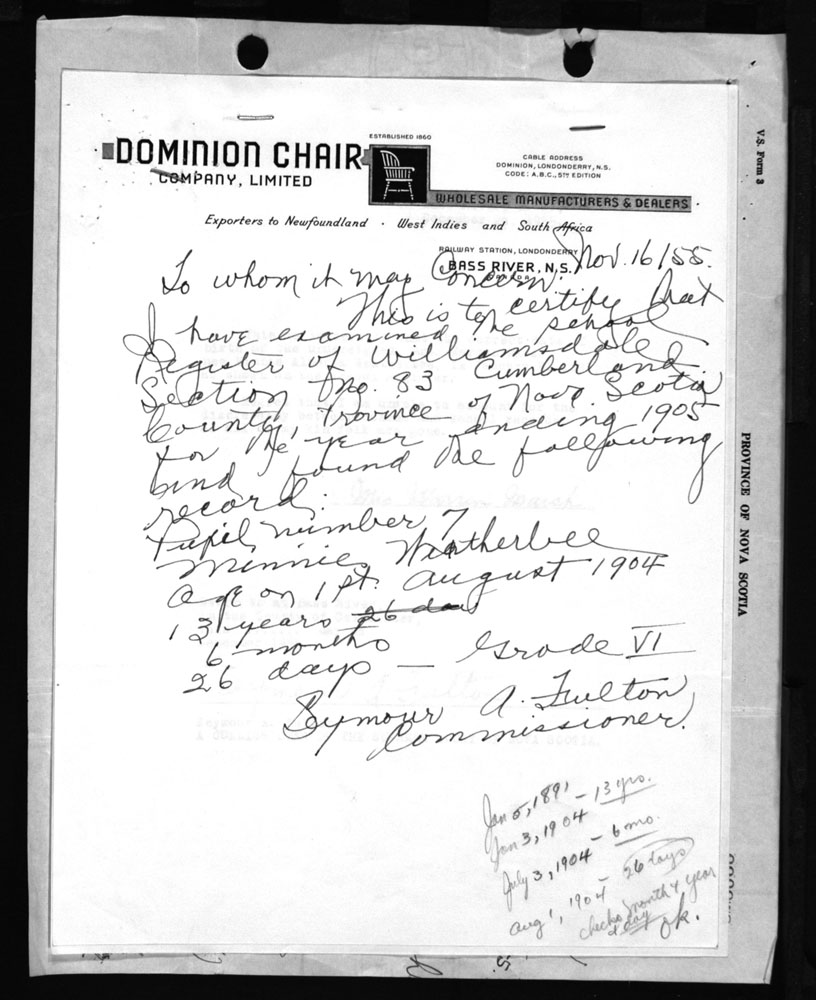 V.S. Form 3
PROVINCE OF NOVA SCOTIA
ESTABLISHED 1860
DOMINION CHAIR
COMPANY, LIMITED
CABLE ADDRESS
DOMINION, LONDONDERRY, N.S.
CODE: A.B.C., 5TH EDITION
WHOLESALE MANUFACTURERS & DEALERS
Exporters to Newfoundland · West Indies and South Africa
RAILWAY STATION, LONDONDERRY
BASS RIVER, N.S.
Nov. 16/55.
To whom it may Concern:
This is to certify that
I have examined the school
Register of Williamsdale
Section No. 83 Cumberland
County, Province of Nova Scotia
for the year ending 1905
and found the following
record:
Pupil number 7
Minnie Weatherbee
age on 1st. August 1904
13 years 26 days
6 months
26 days — Grade VI
Seymour A. Fulton
Commissioner.
Jan 5, 1891 - 13 yrs.
Jan 3, 1904
July 3, 1904 - 6 mo.
Aug 1, 1904 - 26 days
checks month & year
& day ok.